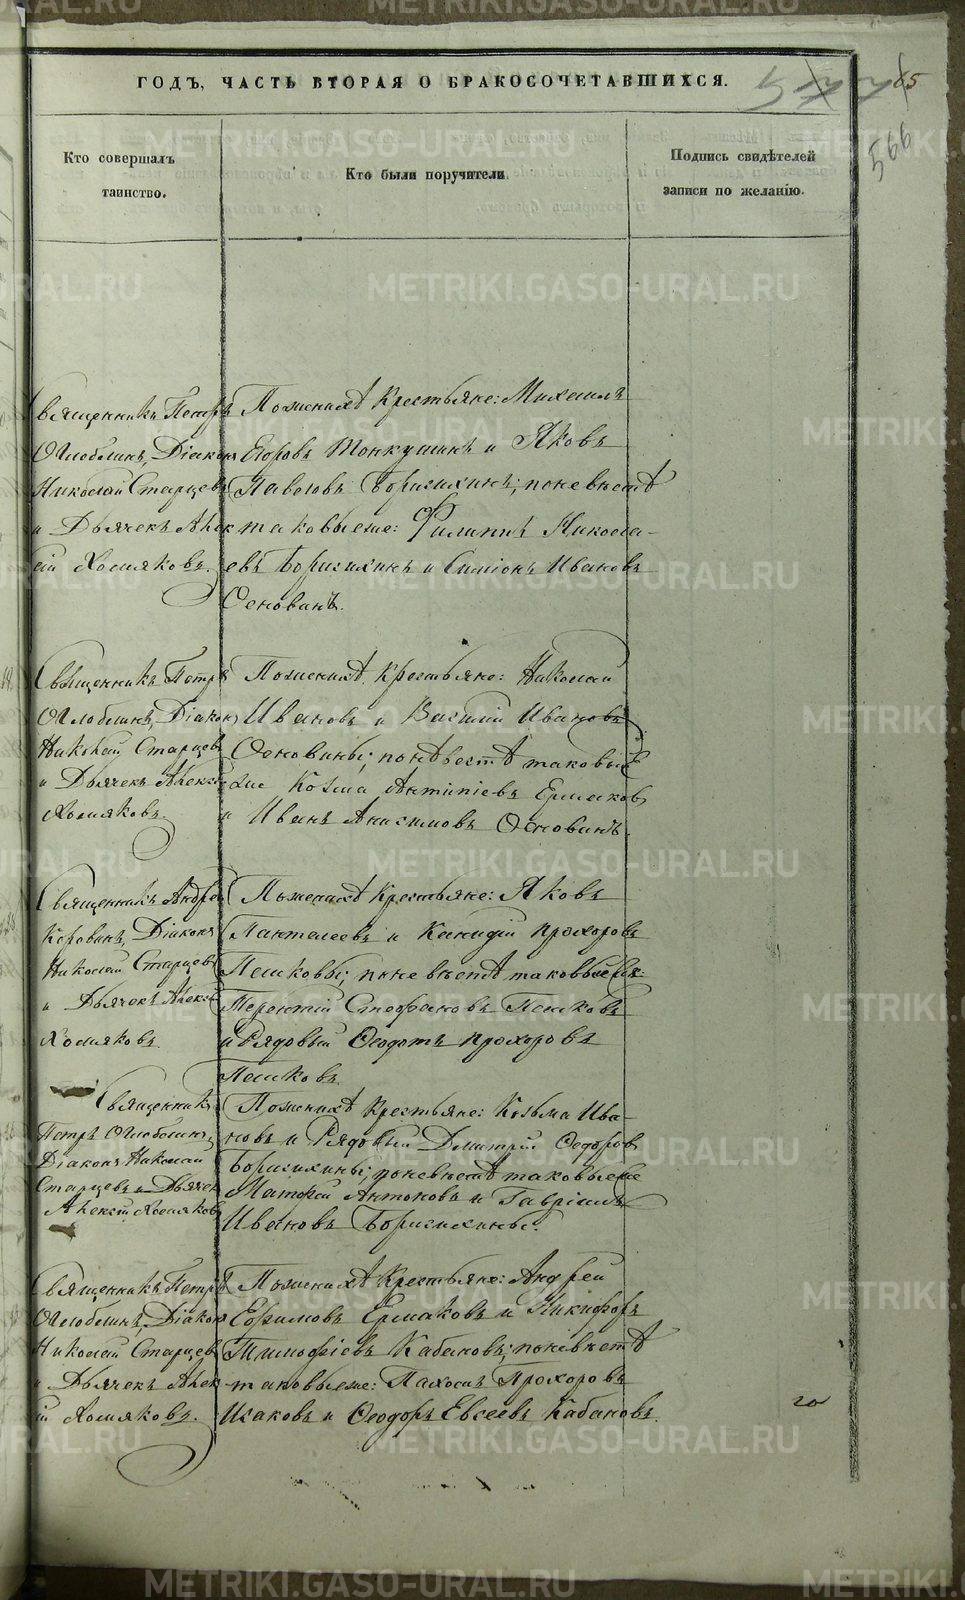 ГОДЪ, ЧАСТЬ ВТОРАЯ О БРАКОСОЧЕТАВШИХСЯ.
566
Кто совершалъ таинство.
Кто были поручители.
Подпись свидѣтелей записи по желанію.
Священникъ Петръ
Оглоблинъ, Діаконъ
Николай Старцевъ
и Дьячекъ Алек
сій Холяковъ.
По женихѣ Крестьяне: Михаилъ
Егоровъ Тонкушинъ и Яковъ
Павловъ Боригихинъ; по невѣстѣ
таковыеже: Филиппъ Никола-
евъ Боригихинъ и Симіонъ Ивановъ
Основинъ.
Священникъ Петръ
Оглоблинъ, Діаконъ
Николай Старцевъ
и Дьячекъ Алексі
Холяковъ.
По женихѣ Крестьяне: Николай
Ивановъ и Василій Ивановъ
Основины; по невѣстѣ таковые
же Козма Антипіевъ Ермаковъ
и Иванъ Анисимовъ Основинъ.
Священникъ Андрей
Коровинъ, Діаконъ
Николай Старцевъ
и Дьячекъ Алексі
Холяковъ.
По женихѣ Крестьяне: Яковъ
Пантелеевъ и Канидій Прохоровъ
Пешковы; по невѣстѣ таковыеже:
Терентій Стефановъ Пешковъ
и Рядовый Ѳеодотъ Прохоровъ
Пешковъ.
Священникъ
Петръ Оглоблинъ,
Діаконъ Николай
Старцевъ и Дьячекъ
Алексій Холяковъ
По женихѣ Крестьяне: Козьма Ива-
новъ и Рядовый Дмитрій Ѳедоровъ
Боригихины; по невѣстѣ таковыеже
Матфей Антоновъ и Гавріилъ
Ивановъ Боригихины.
Священникъ Петръ
Оглоблинъ, Діаконъ
Николай Старцевъ
и Дьячекъ Алек
сій Холяковъ.
По женихѣ Крестьяне: Андрей
Ефимовъ Ермаковъ и Никифоръ
Тимофіевъ Кабановъ; по невѣстѣ
таковыеже: Пахомъ Прохоровъ
Исаковъ и Ѳеодоръ Евсеевъ Кабановъ.
METRIKI.GASO-URAL.RU